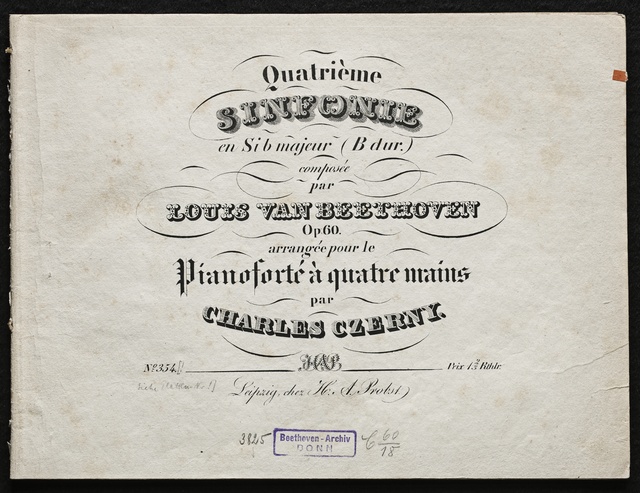 Quatrième
SINFONIE
en Si b majeur (B dur.)
composée
par
LOUIS VAN BEETHOVEN
Op. 60.
arrangée pour le
Pianoforté à quatre mains
par
CHARLES CZERNY.
No. 354. HAP Prix Rthlr.
Leipzig, chez H. A. Probst
3825 Beethoven-Archiv BONN C 60/18